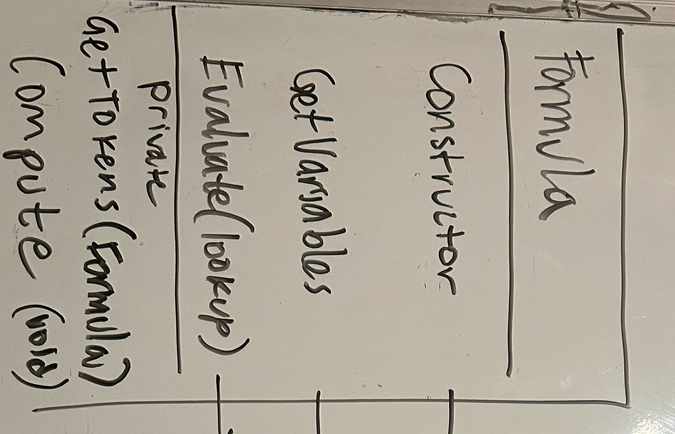 Formula
Constructor
GetVariables
Evaluate(lookup)
private
GetTokens(Formula)
Compute (void)